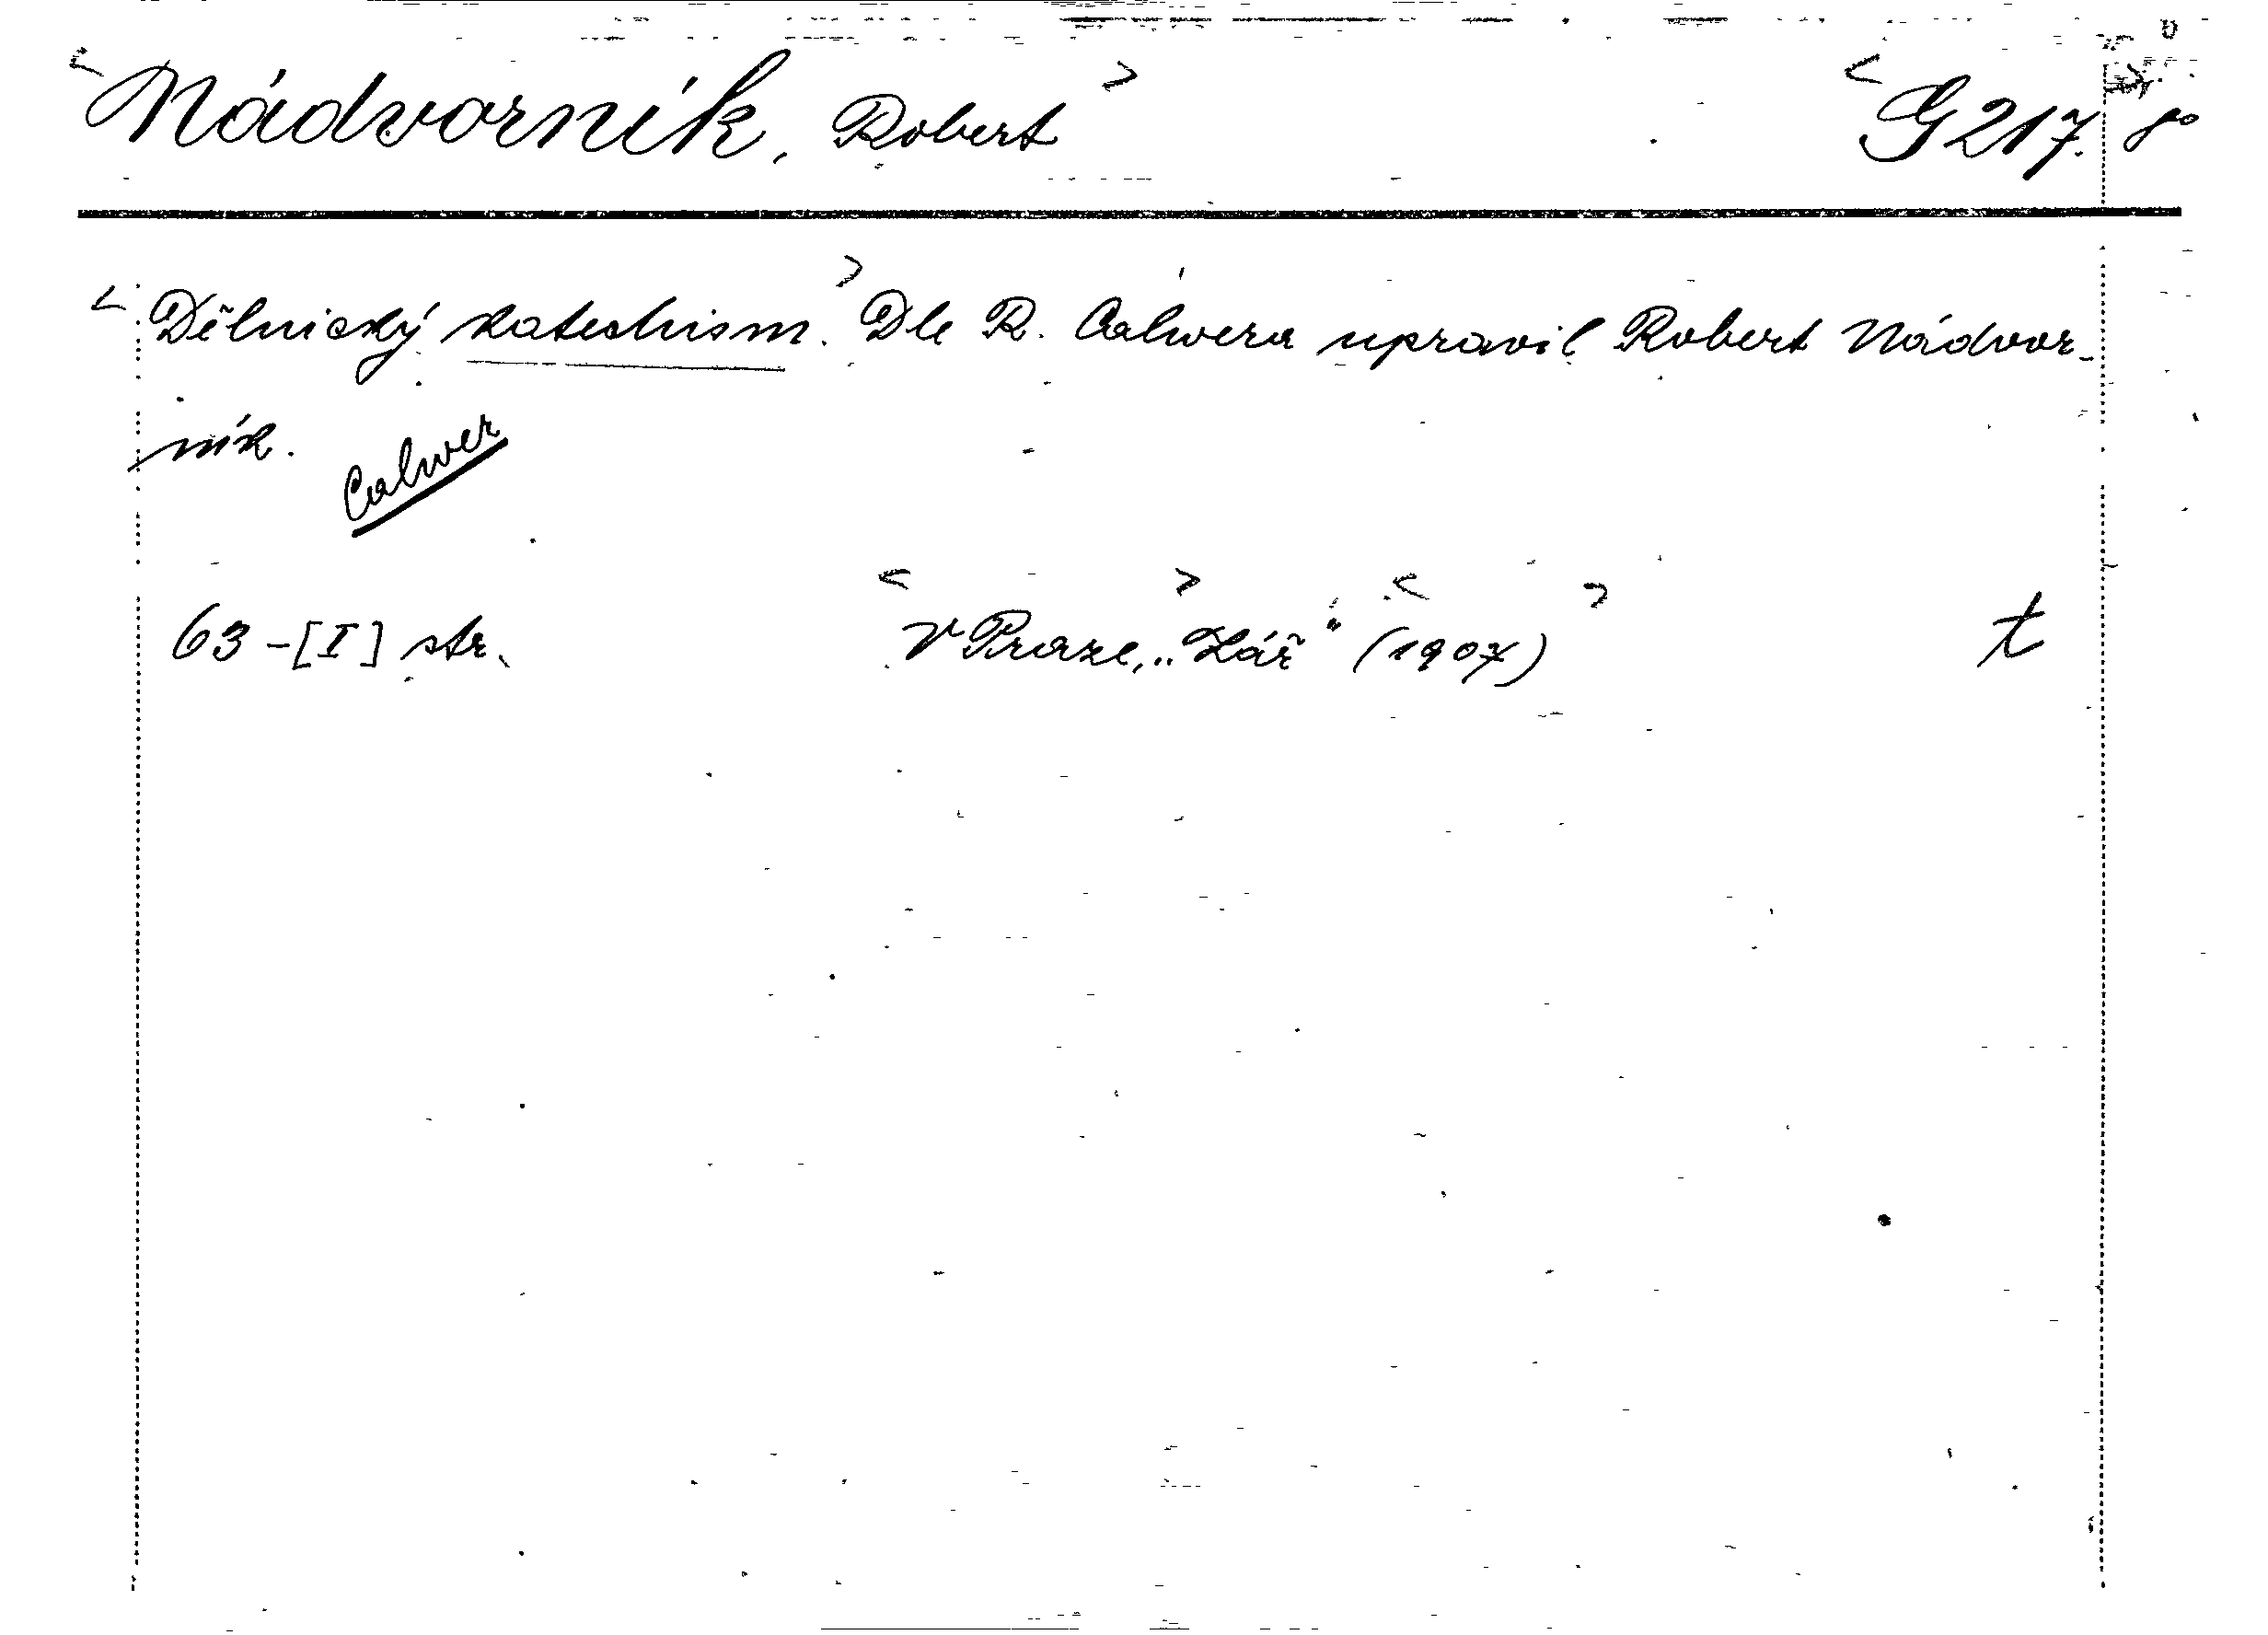 <Nádvorník, Robert> <G 217.>
<Dělnický katechism.> Dle R. Calwera upravil Robert Nádvor-
ník.
Calwer
63-[I] str. <V Praze,> „Zář“ <(1907)> t